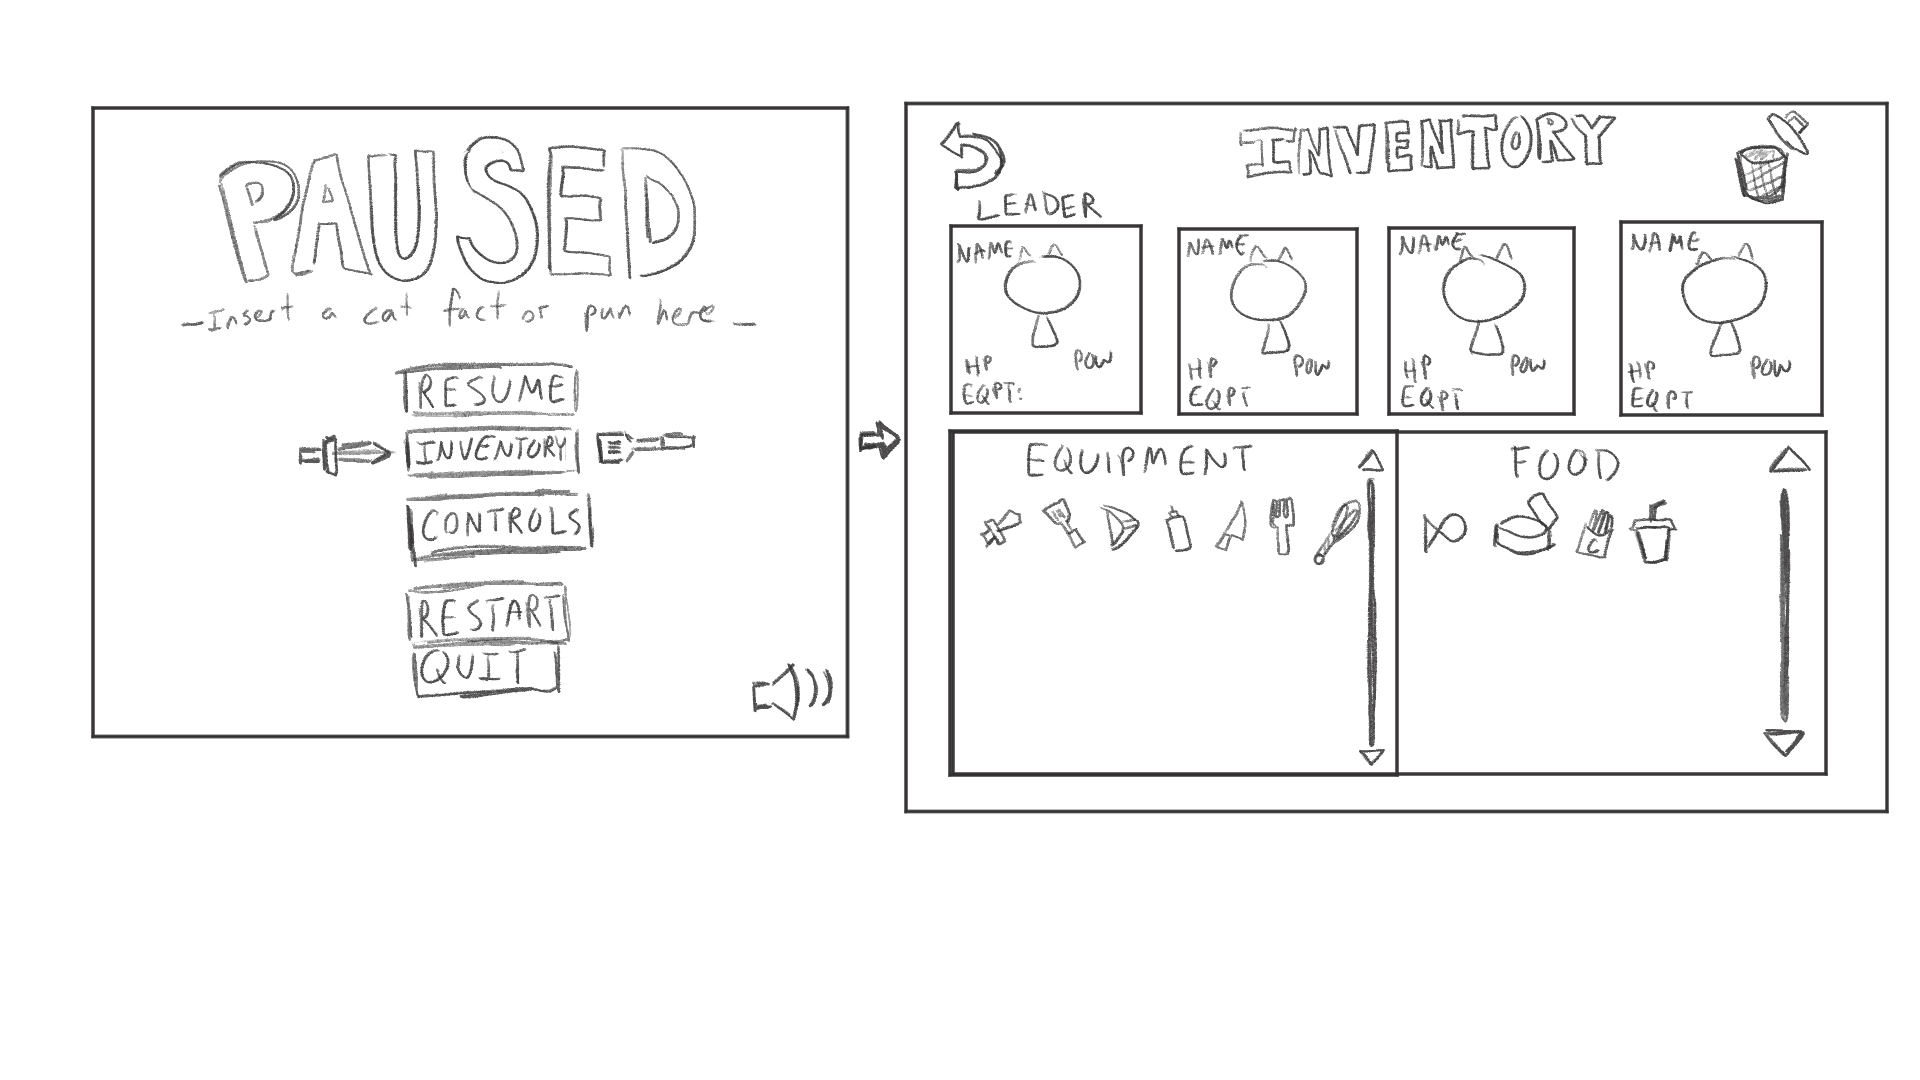 PAUSED
-Insert a cat fact or pun here -
RESUME
INVENTORY
CONTROLS
RESTART
QUIT
INVENTORY
LEADER
NAME
HP POW
EQPT:
NAME
HP POW
EQPT
NAME
HP POW
EQPT
NAME
HP POW
EQPT
EQUIPMENT
FOOD
C